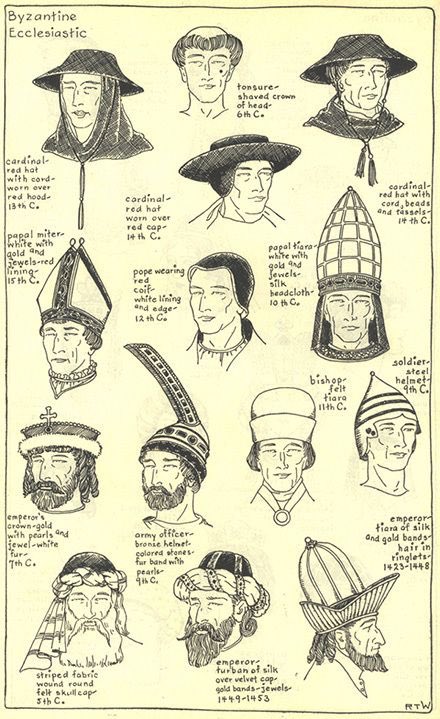 Byzantine
Ecclesiastic
tonsure-
shaved crown
of head-
6th C.
cardinal-
red hat
with cord-
worn over
red hood-
13th C.
cardinal-
red hat
worn over
red cap-
14th C.
cardinal-
red hat with
cord, beads
and tassels-
14th C.
papal miter-
white with
gold and
jewels-red
lining-
15th C.
pope wearing
red
coif-
white lining
and edge-
12th C.
papal tiara-
white with
gold and
jewels-
silk
headcloth-
10th C.
bishop-
felt
tiara
11th C.
soldier-
steel
helmet-
9th C.
emperor's
crown-gold
with pearls and
jewel-white
fur-
7th C.
army officer-
bronze helmet-
colored stones-
fur band with
pearls-
9th C.
emperor-
tiara of silk
and gold bands-
hair in
ringlets-
1423-1448
striped fabric
wound round
felt skullcap-
5th C.
emperor-
turban of silk
over velvet cap-
gold bands-jewels-
1449-1453
RTW